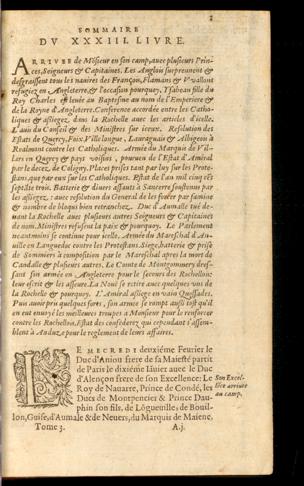 SOMMAIRE
DV XXXIII. LIVRE.
ARRIVEE de Mõsieur en son camp, auec plusieurs Prin-
ces, Seigneurs & Capitaines. Les Anglois surprennent &
desgraissent tous les nauires des François, Flamans & Vvallons
refugiez en Angleterre, & l'occasion pourquoy. Ysabeau fille du
Roy Charles esleuée au Baptesme au nom de l'Emperiere &
de la Royne d'Angleterre. Conference accordée entre les Catho-
liques & assiegez dans la Rochelle auec les articles d'icelle.
L'auis du Conseil & des Ministres sur iceux. Resolution des
Estats de Quercy, Foix Ville longue, Lauraguais & Albigeois à
Realmont contre les Catholiques. Armée du Marquis de Vil-
lars en Quercy & pays voisins, pourueu de l'Estat d'Ameral
par le decez, de Coligny. Places prises tant par luy sur les Prote-
stans, que par eux sur les Catholiques. Estat de l'au mil cinq cẽs
septante trois. Batterie & diuers assauts à Sancerre soustenus par
les assiegez: auec resolution du General de les forcer par famine
& nombre de blоqus bien retranchez. Duc d'Aumalle tué de-
uant la Rochelle auec plusieurs autres Seigneurs & Capitaines
de nom. Ministres refusent la paix & pourquoy. Le Parlement
neantmoins se continue pour icelle. Armée du Mareschal d'An-
uille en Languedoc contre les Protestans. Siege, batterie & prise
de Sommiers à composition par le Mareschal apres la mort de
Candalle & plusieurs autres. Le Comte de Montgommery dres-
sant son armée en Angleterre pour le secours des Rochellois:
leur escrit & les asseure. La Nouë se retire auec quelques vns de
la Rochelle & pourquoy. L'Amiral assiege en vain
Puis auoir pris quelques forts, son armée se rompt aussi tost qu'il
en eut enuoyé les meilleures troupes a Monsieur pour le renforcer
contre les Rochellois. Estat des confederez qui cependant s'assem-
blent à Anduze pour le reglement de leurs affaires.
LE MECREDI deuxiéme Feurier le
Duc d'Aniou frere de sa Maiesté partit
de Paris le dixiéme Iãuier auec le Duc
d'Alençon frere de son Excellence: Le
Roy de Nauarre, Prince de Condé, les
Ducs de Montpencier & Prince Dau-
phin son fils, de Lõgueuille, de Bouil-
lon, Guise, d'Aumale & de Neuers, du Marquis de Maiene,
Son Excel-
lẽce arriuée
au camp.
Tome 3. A.j.